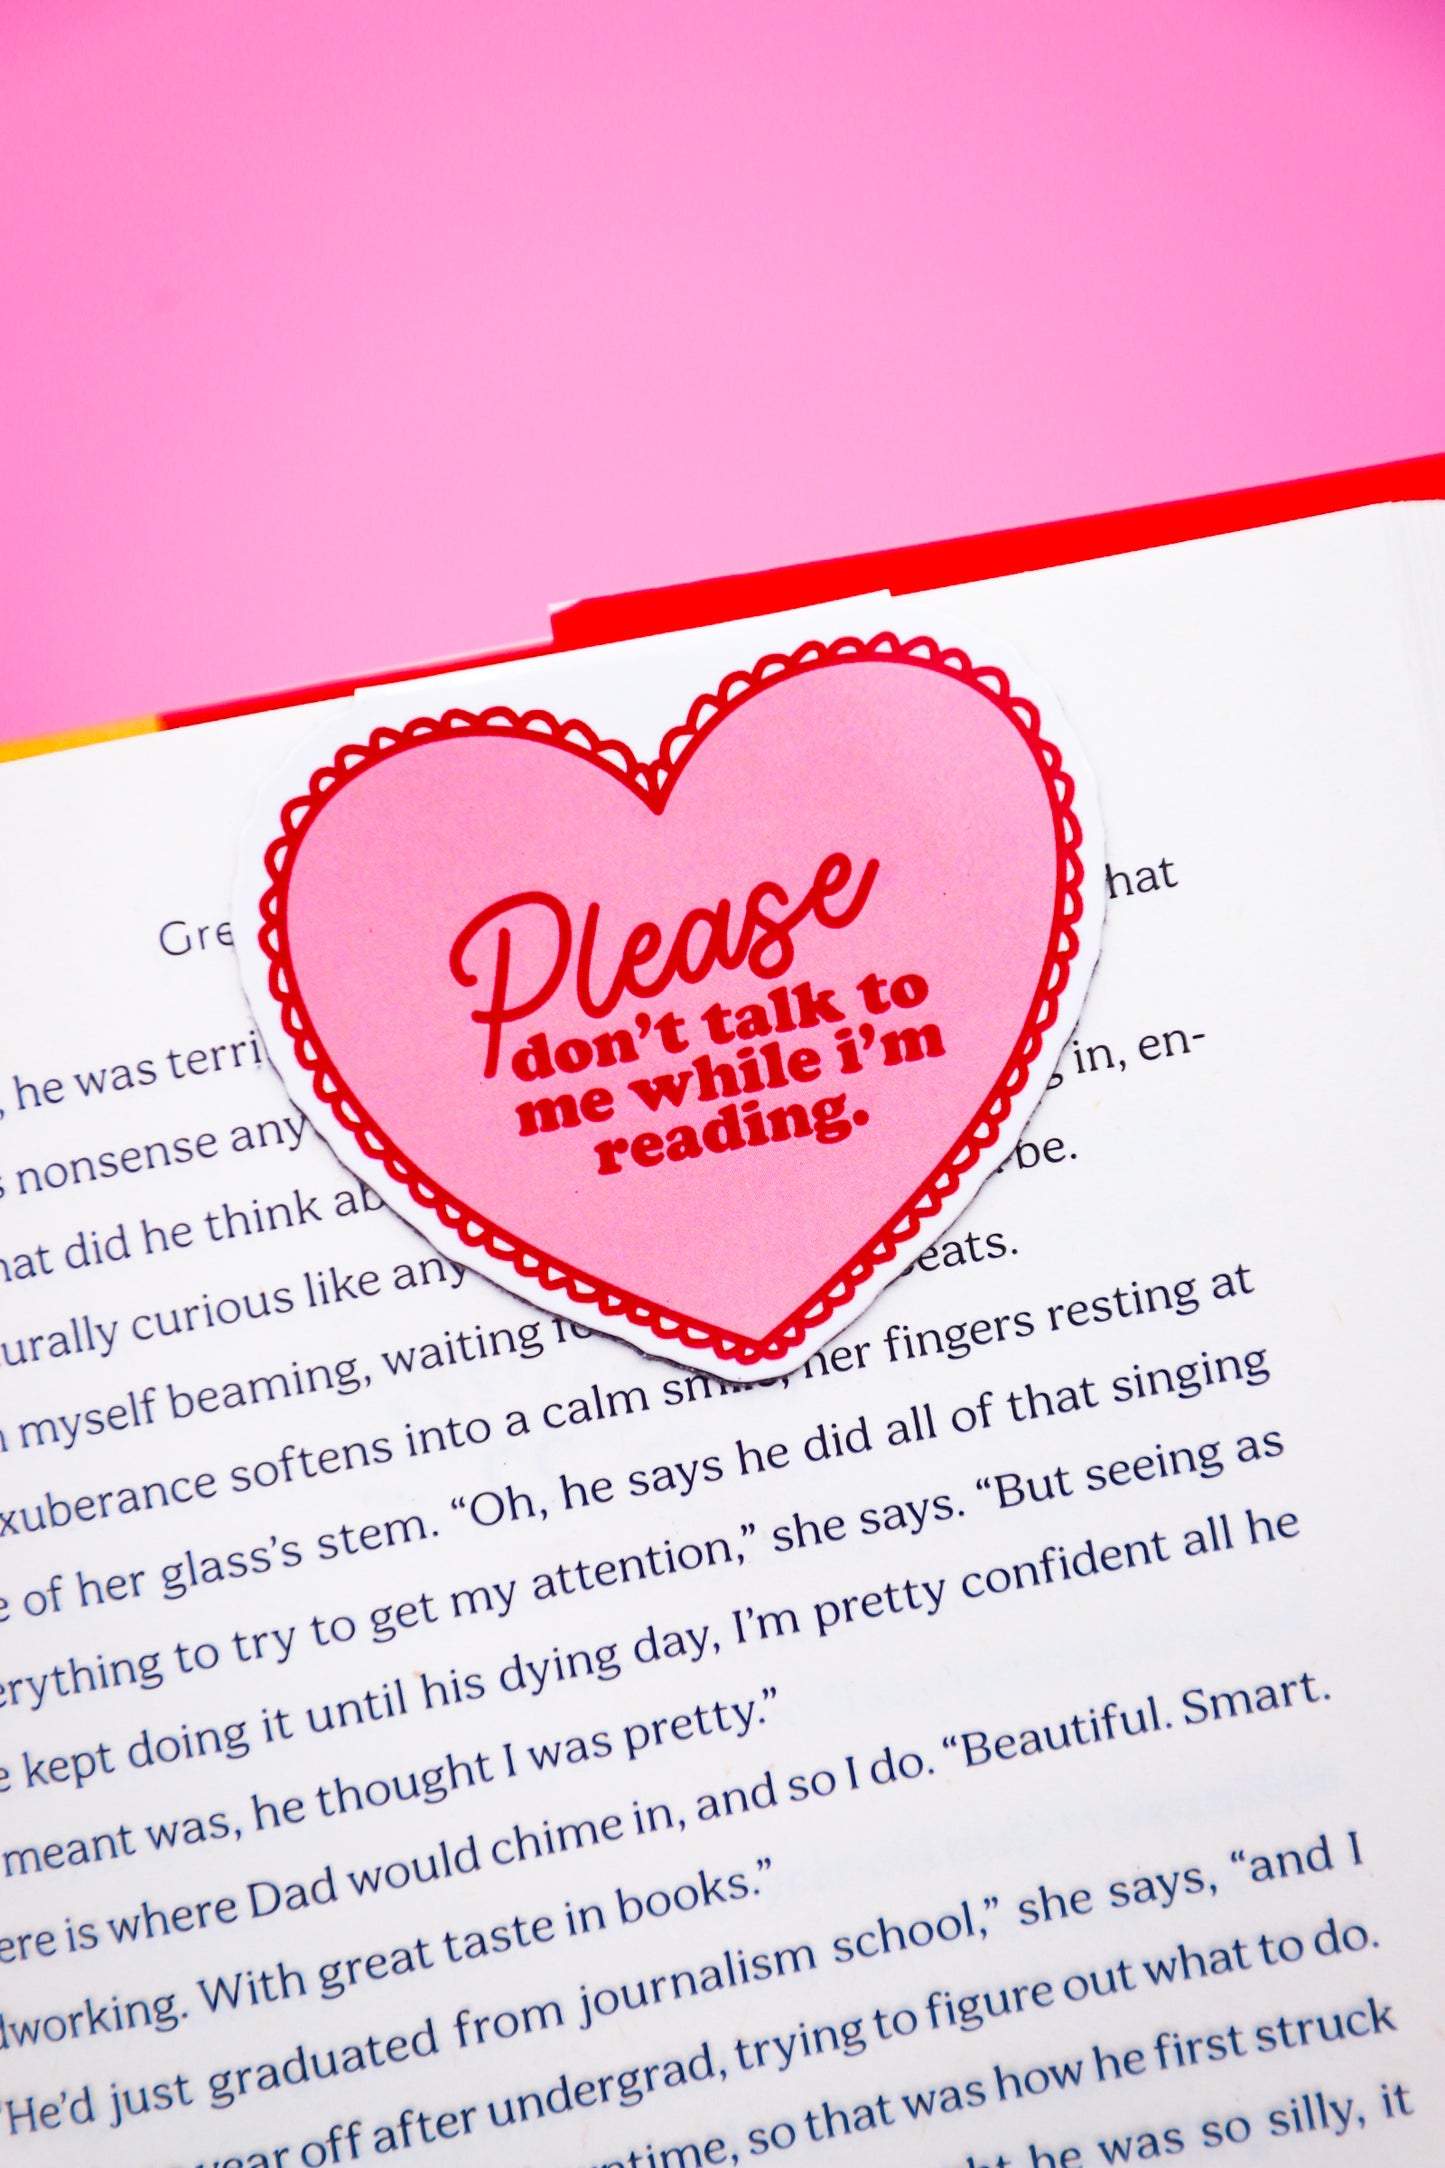 Please
don't talk to
me while i'm
reading.
hat
he was terri
in, en-
nonsense any
be.
hat did he think ab
eats.
urally curious like any
myself beaming, waiting
her fingers resting at
xuberance softens into a calm
e of her glass's stem. “Oh, he says he did all of that singing
erything to try to get my attention,” she says. “But seeing as
e kept doing it until his dying day, I'm pretty confident all he
meant was, he thought I was pretty.”
ere is where Dad would chime in, and so I do. “Beautiful. Smart.
dworking. With great taste in books.”
“He'd just graduated from journalism school,” she says, “and I
year off after undergrad, trying to figure out what to do.
ntime, so that was how he first struck
he was so silly, it